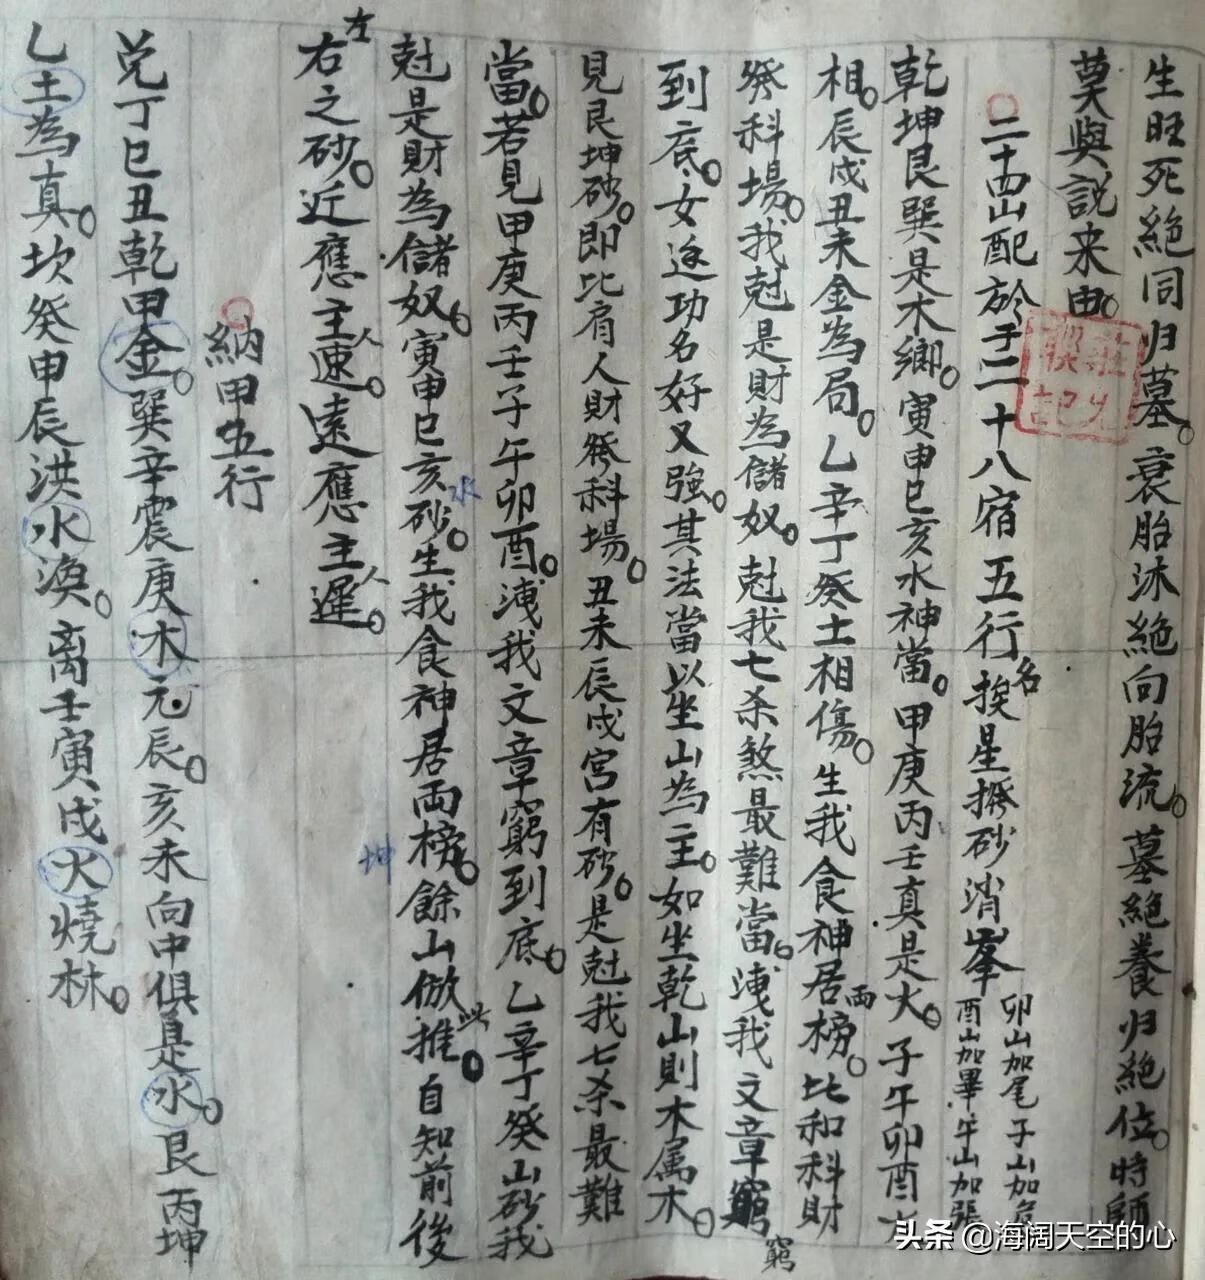 生旺死絕同归墓。衰胎沐絕向胎流。墓絕養归絕位。時師
莫與説来由。
二十四山配於于二十八宿五行名挨星撥砂消峯
卯山加尾子山加危
酉山加畢午山加張
乾坤艮巽是木鄉。寅申巳亥水神當。甲庚丙壬真是火。子午卯酉火
相。辰戌丑未金為局。乙辛丁癸土相傷。生我食神居兩榜。比和科財
發科場。我尅是財為儲奴。尅我七杀煞最難當。洩我文章窮
窮
到底。女逆功名好又強。其法當以坐山為主。如坐乾山則木属木。
見艮坤砂。即比肩人財發科場。丑未辰戌宮有砂。是尅我七杀最難
當。若見甲庚丙壬子午卯酉。洩我文章窮到底。乙辛丁癸山砂我
尅是財為儲奴。寅申巳亥水砂。生我食神居兩榜。餘山倣此推。自知前後
坤
左右之砂。近應主人速。遠應主人遲。
納甲五行
兑丁巳丑乾甲金。巽辛震庚木元辰。亥未向中俱是水。艮丙坤
乙土為真。坎癸申辰洪水渙。离壬寅戌火燒林。
头条 @海阔天空的心